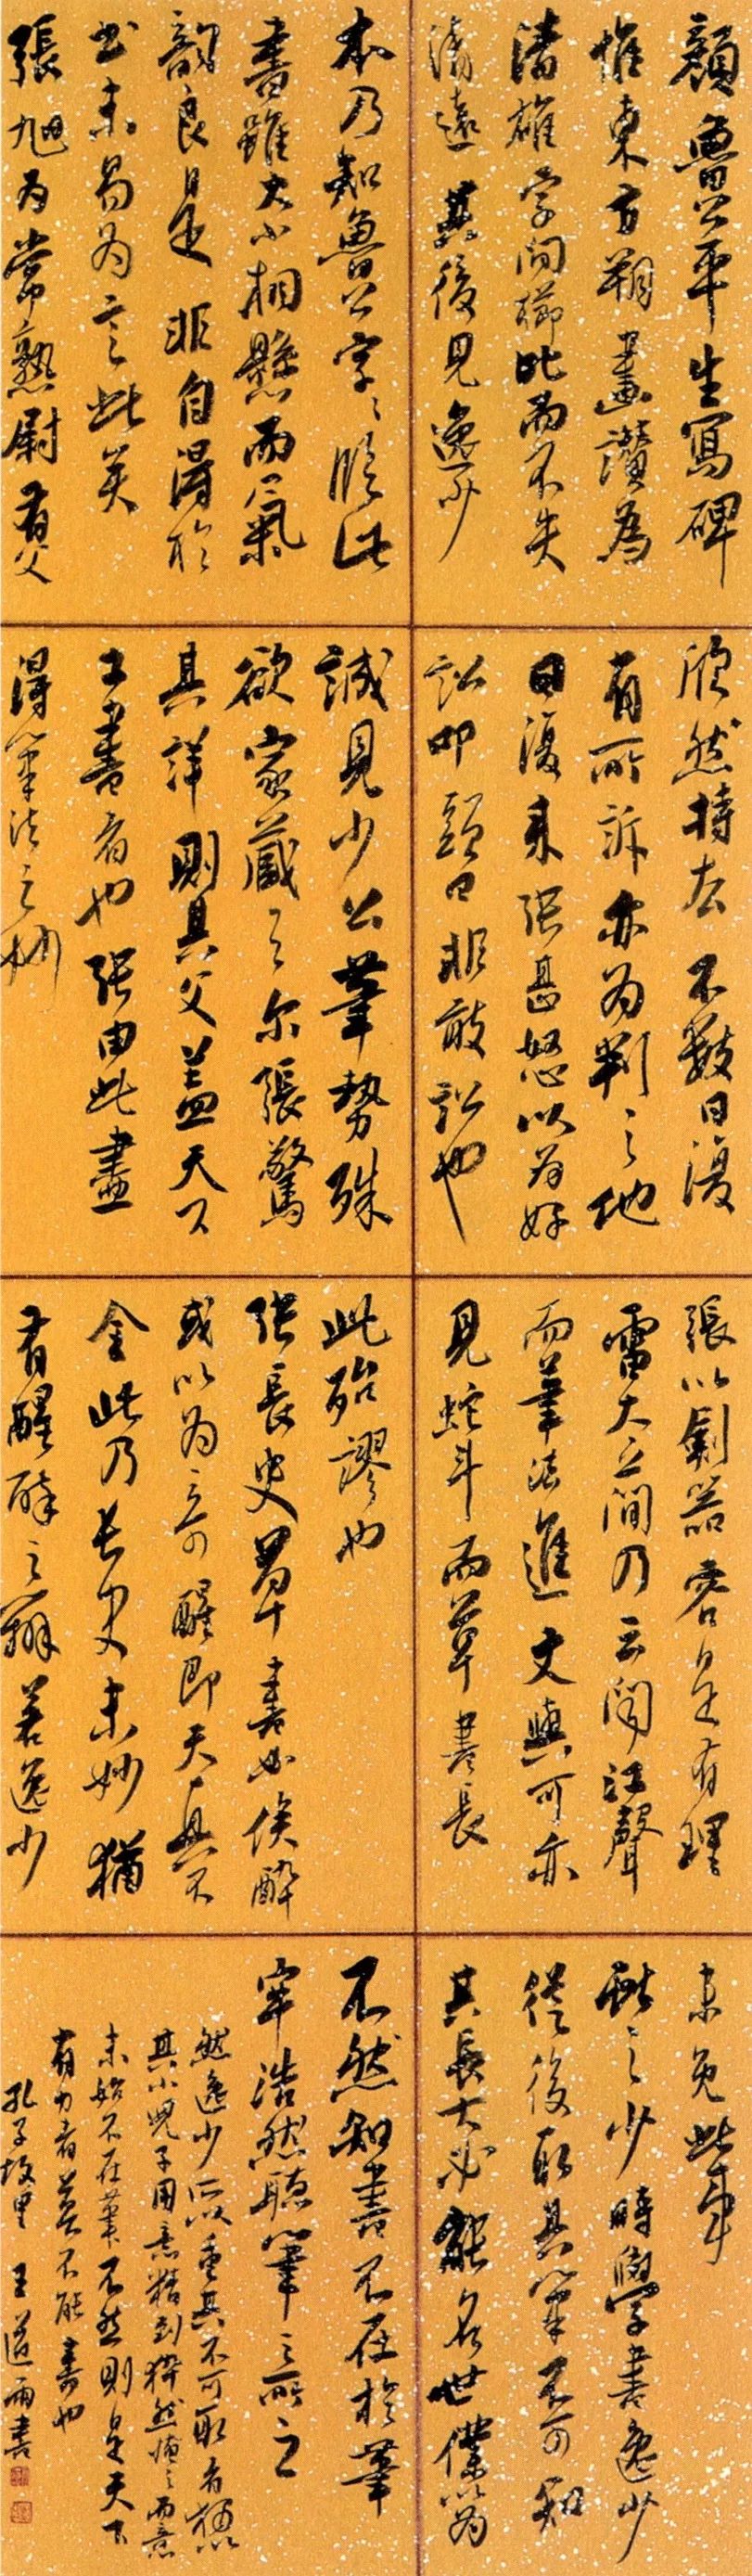 顏魯公平生寫碑
惟東方朔畫讚為
清雄字間櫛比而不失
清遠其後見逸少
本乃知魯公字字臨此
書雖大小相懸而氣
韻良是非自得於
書未易為言此矣
張旭為常熟尉有父
老
欣然持去不數日復
有所訴亦為判之他
日復來張甚怒以為好
訟叩頭曰非敢訟也
誠見少公筆勢殊
欲家藏之尔張驚
其詳則其父蓋天下
工書者也張由此盡
得筆法之妙
張以劍器容是有理
雷大之簡乃云聞江聲
而筆法進文與可亦
見蛇斗而草書長
此殆謬也
張長史草書必俟醉
或以為奇醒即天真不
全此乃長史未妙猶
有醒醉之辨若逸少
未免此事
獻之少時學書逸少
從後取其筆不可知
其長大必能名世僕以為
不然知書不在於筆
牢浩然聽筆之所之
然逸少所以重其不可取者獨以
其小兒子用意精到猝然掩之而意
未始不在筆不然則是天下
有力者莫不能書也
孔子故里王道雨書